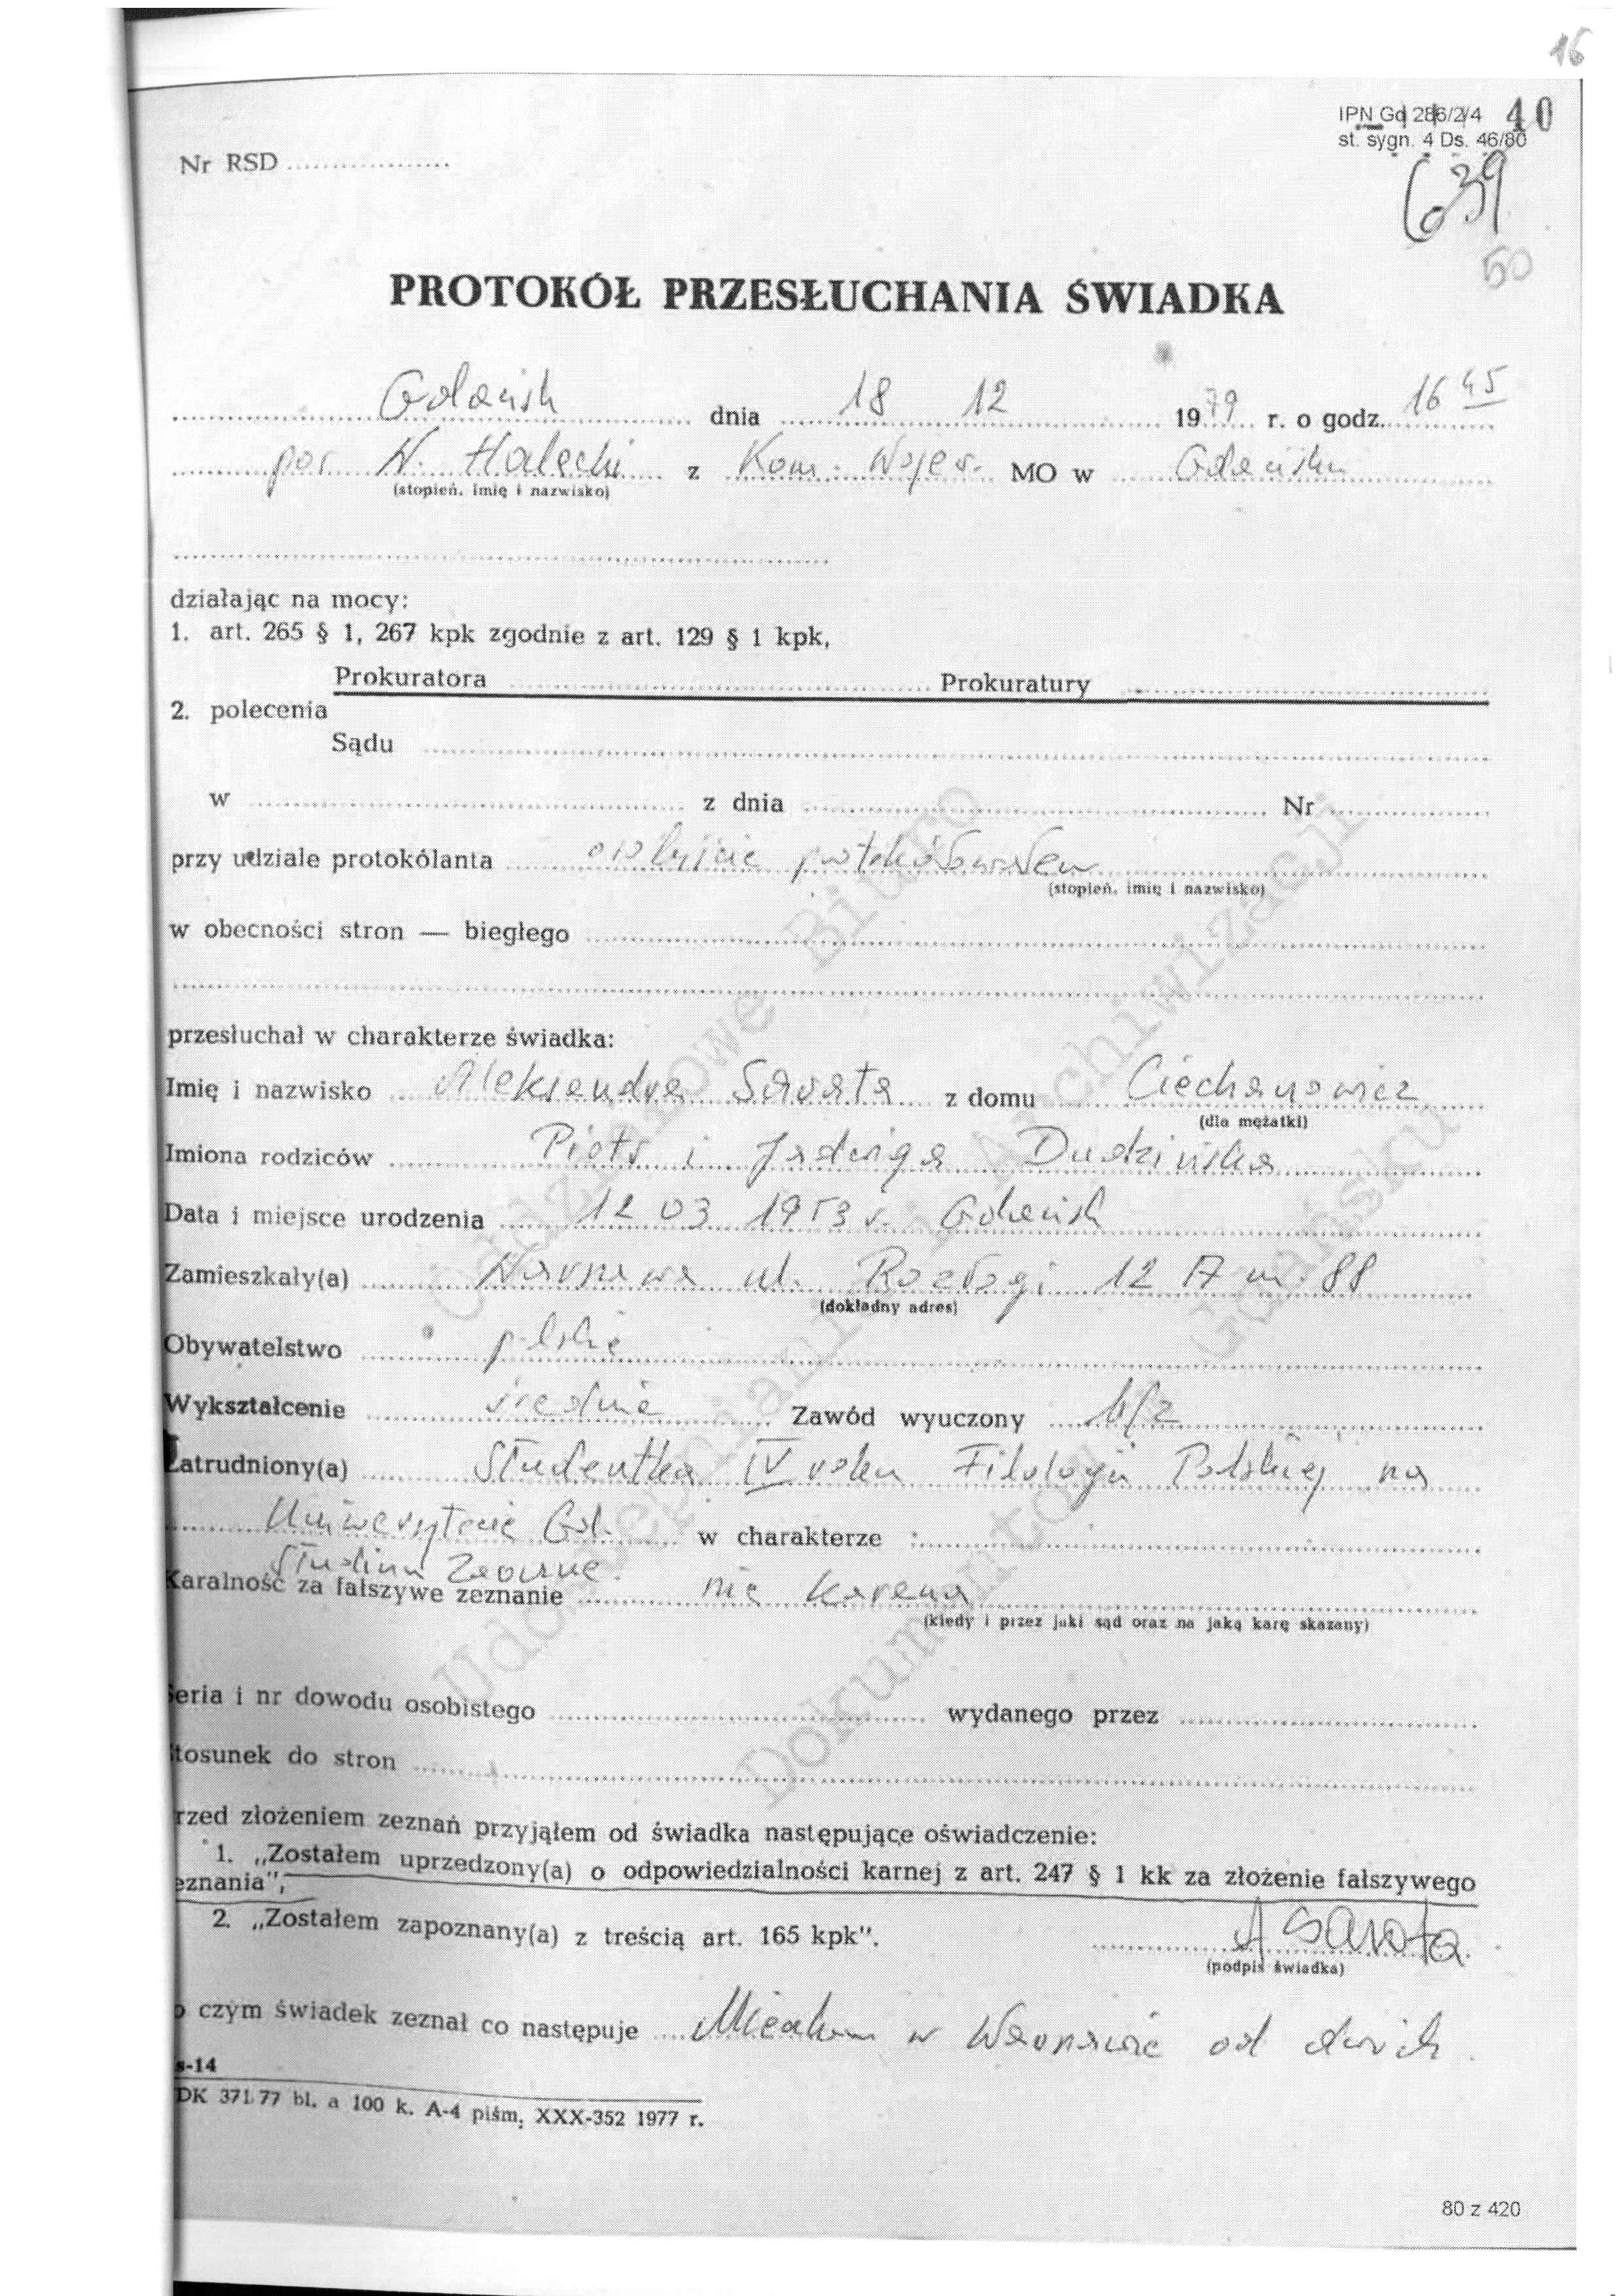 16
IPN Gd 286/2/4 40
st. sygn. 4 Ds. 46/80
Nr RSD ..................
639
50
PROTOKÓŁ PRZESŁUCHANIA ŚWIADKA
Gdańsk dnia 18 12 1979 r. o godz. 16 45
por W. Halecki z Kom. Wojew. MO w Gdańsku
(stopień, imię i nazwisko)
działając na mocy:
1. art. 265 § 1, 267 kpk zgodnie z art. 129 § 1 kpk,
Prokuratora ........ Prokuratury ........
2. polecenia
Sądu ........
w ........ z dnia ........ Nr ........
przy udziale protokólanta osobiście protokółowałem
(stopień, imię i nazwisko)
w obecności stron — biegłego ........
przesłuchał w charakterze świadka:
Imię i nazwisko Aleksandra Sarata z domu Ciechanowicz
(dla mężatki)
Imiona rodziców Piotr i Jadwiga Dudzińska
Data i miejsce urodzenia 12 03 1953 r. Gdańsk
Zamieszkały(a) Warszawa ul. Rozłogi 12 A m. 88
(dokładny adres)
Obywatelstwo polskie
Wykształcenie średnie Zawód wyuczony b/z
Zatrudniony(a) Studentka IV roku Filologii Polskiej na
Uniwersytecie Gd. w charakterze ........
Studium Zaoczne.
Karalność za fałszywe zeznanie nie karana
(kiedy i przez jaki sąd oraz na jaką karę skazany)
Seria i nr dowodu osobistego ........ wydanego przez ........
Stosunek do stron ........
rzed złożeniem zeznań przyjąłem od świadka następujące oświadczenie:
1. „Zostałem uprzedzony(a) o odpowiedzialności karnej z art. 247 § 1 kk za złożenie fałszywego
eznania",
2. „Zostałem zapoznany(a) z treścią art. 165 kpk".
A Sarata.
(podpis świadka)
o czym świadek zeznał co następuje Mieszkam w Warszawie od dwóch
s-14
DK 371/77 bl. a 100 k. A-4 piśm. XXX-352 1977 r.
Oddziałowe Biuro
Udostępniania i Archiwizacji
Dokumentów Gdańsku
80 z 420